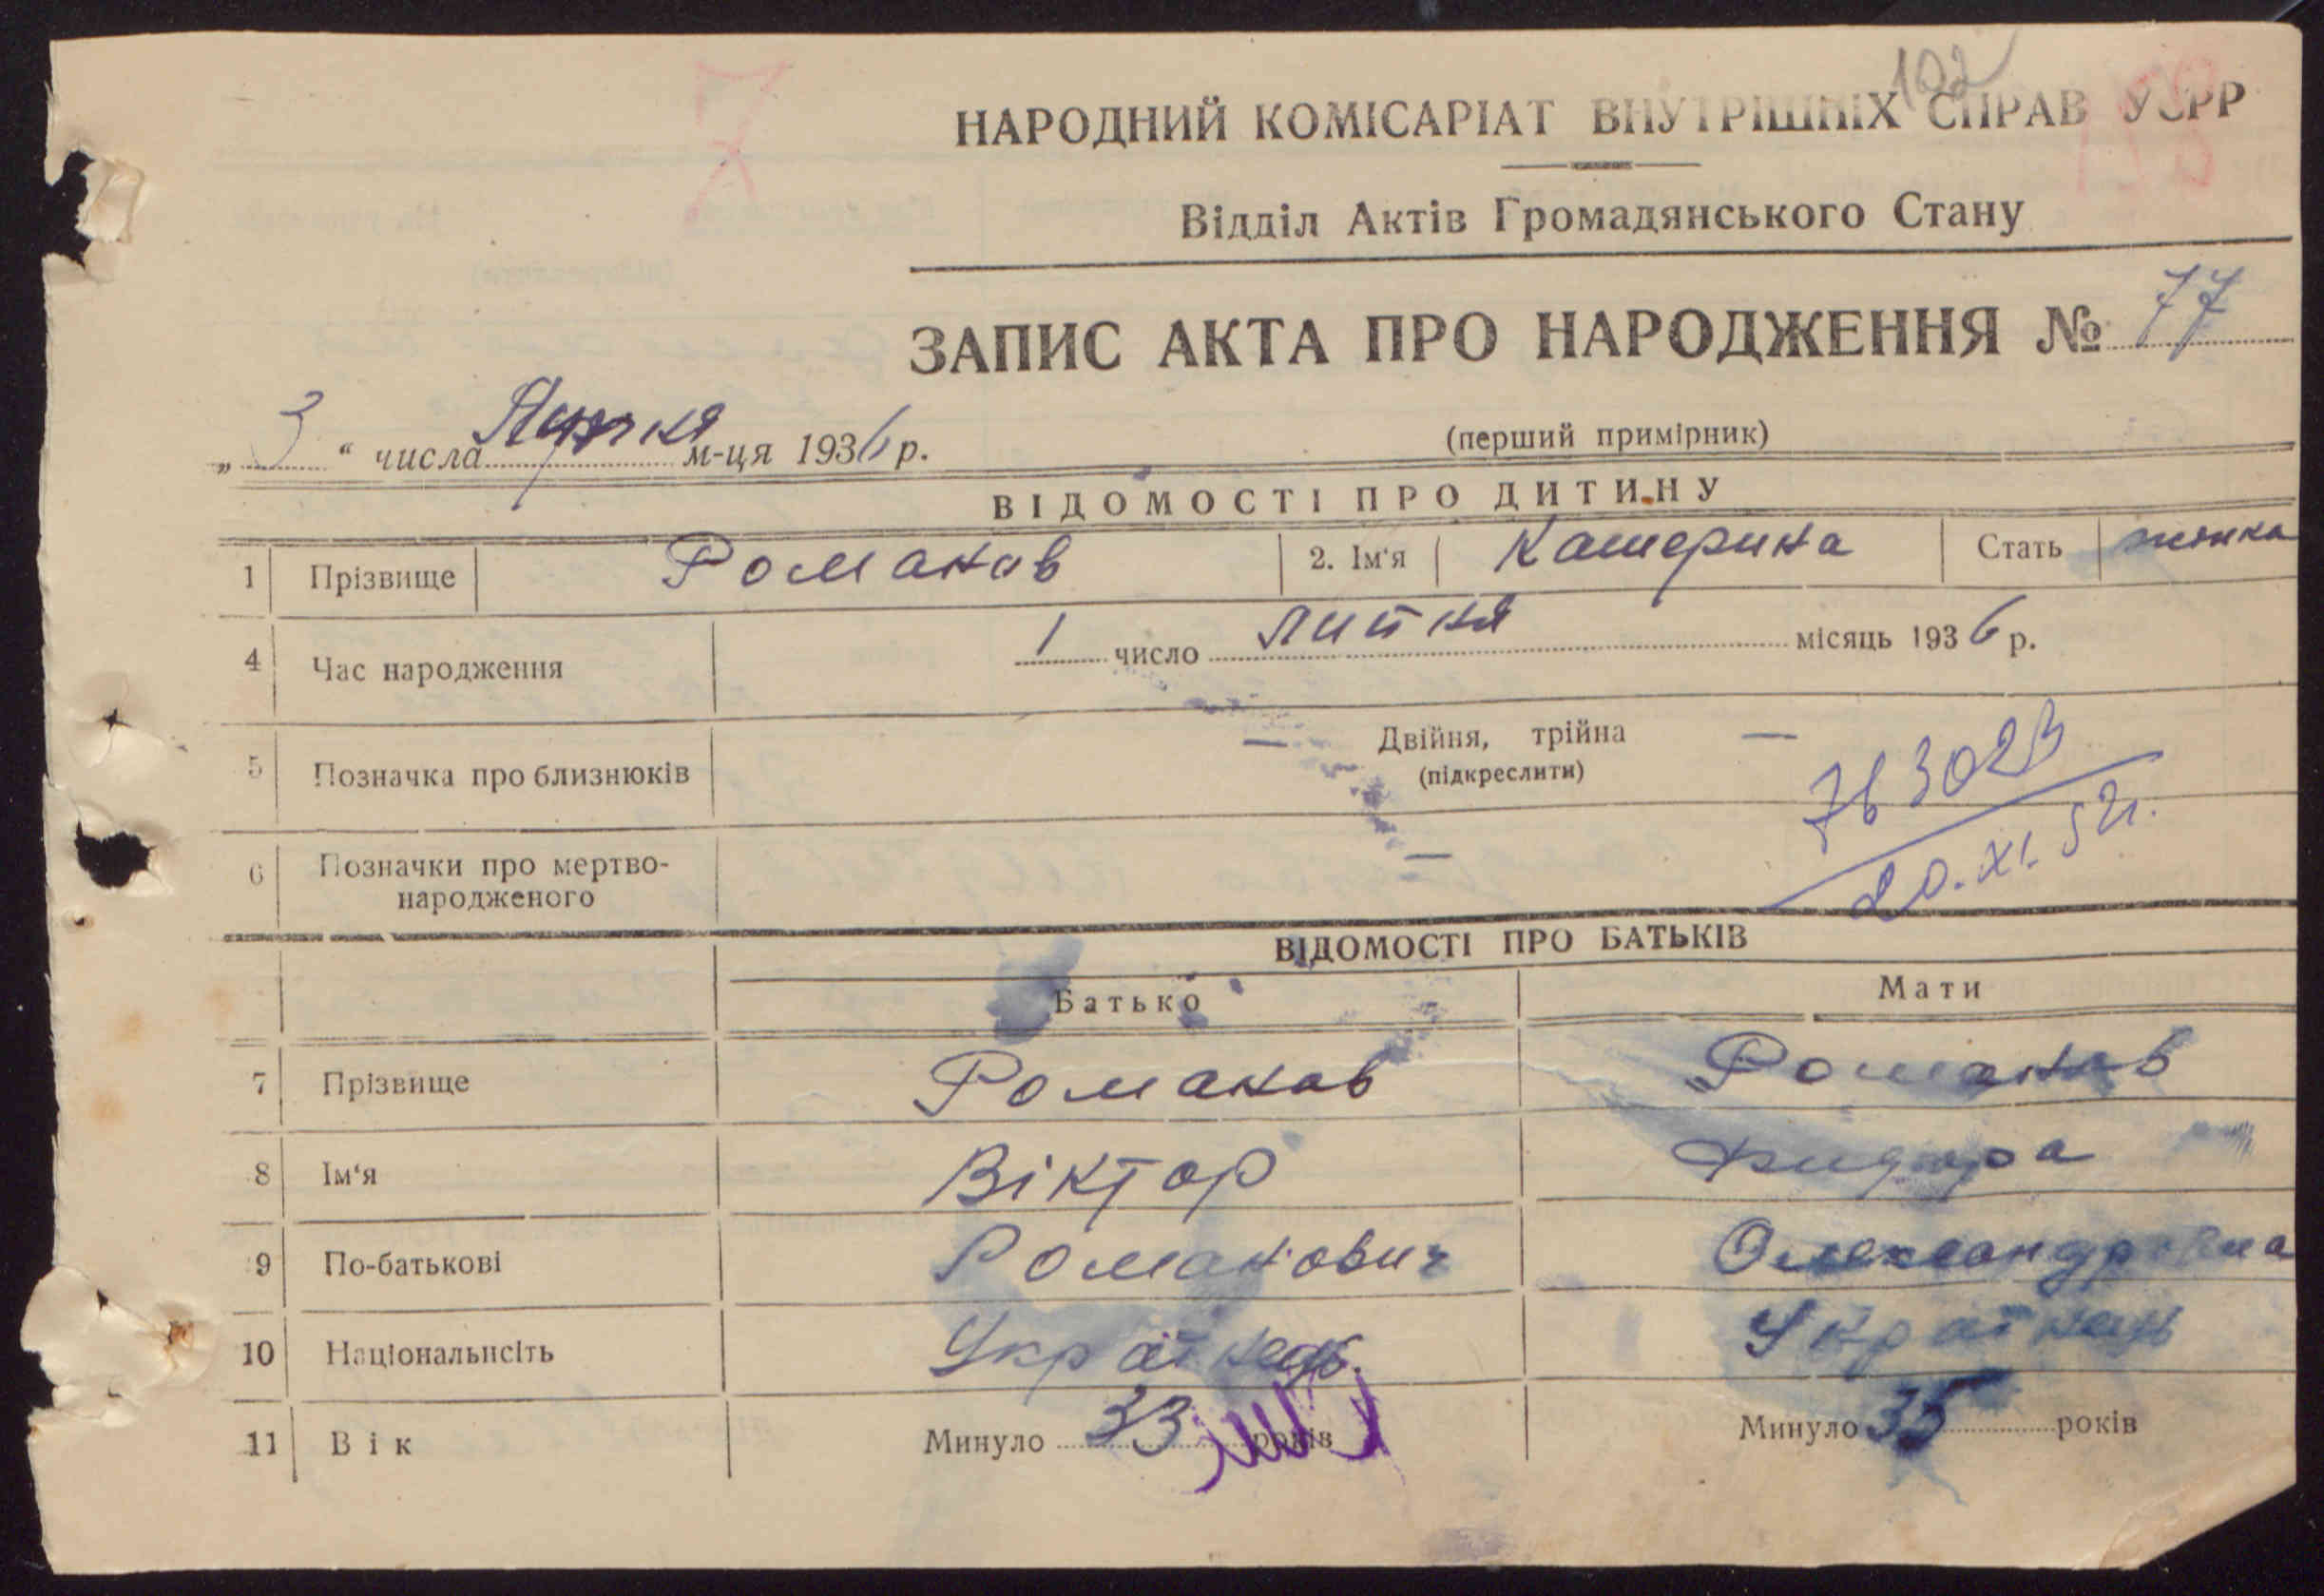 102
НАРОДНИЙ КОМІСАРІАТ ВНУТРІШНІХ СПРАВ УСРР
Відділ Актів Громадянського Стану
ЗАПИС АКТА ПРО НАРОДЖЕННЯ № 77
(перший примірник)
„ 3 “ числа м-ця 1936 р.
ВІДОМОСТІ ПРО ДИТИНУ
1 Прізвище Романов 2. Ім'я Катерина Стать жінка
4 Час народження 1 число липня місяць 1936 р.
5 Позначка про близнюків — Двійня, трійна —
(підкреслити)
6 Позначки про мертво-
народженого —
20.XI.52г.
ВІДОМОСТІ ПРО БАТЬКІВ
Батько Мати
7 Прізвище Романов Романов
8 Ім'я Віктор
9 По-батькові Романович Олександровна
10 Національнсіть Українець. Українець
11 Вік Минуло 33 років Минуло 35 років